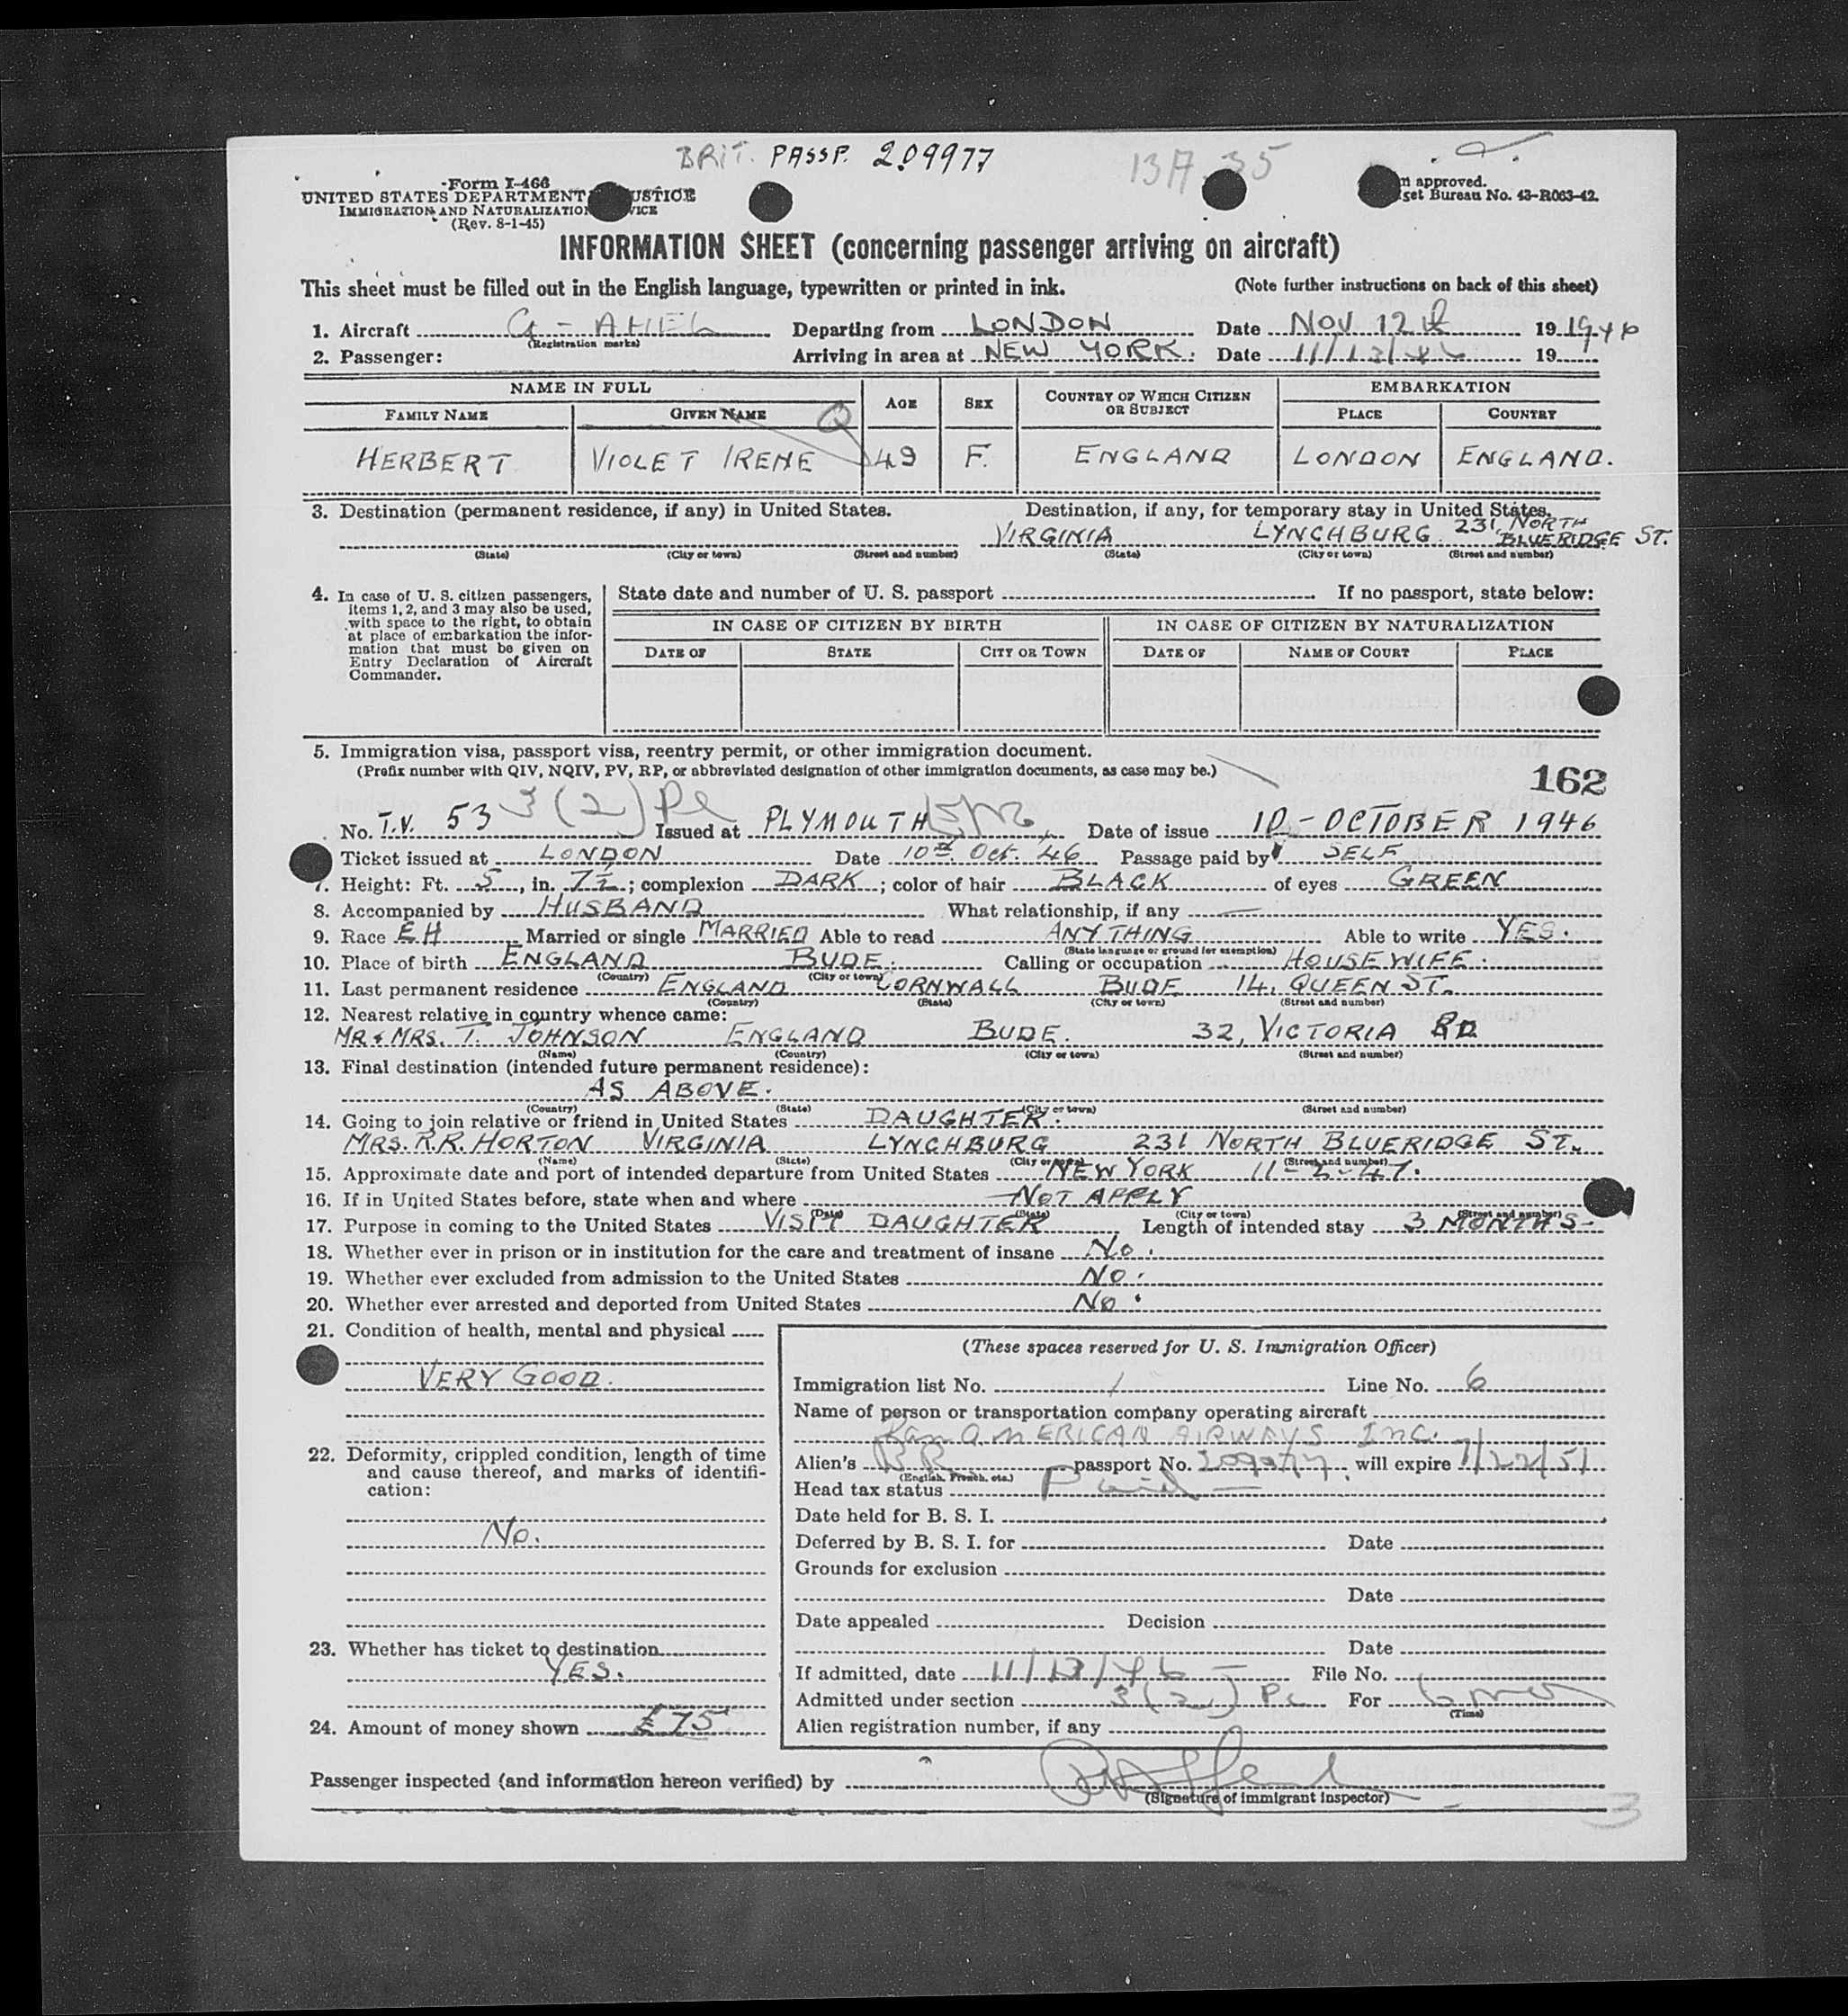 BRIT. PASSP. 209977
Form I-466
UNITED STATES DEPARTMENT JUSTICE
IMMIGRATION AND NATURALIZATION SERVICE
(Rev. 8-1-45)
Form approved.
Budget Bureau No. 43-R063-42.
INFORMATION SHEET (concerning passenger arriving on aircraft)
This sheet must be filled out in the English language, typewritten or printed in ink. (Note further instructions on back of this sheet)
1. Aircraft G-AHEL Departing from LONDON Date NOV 12th 19 1946
(Registration marks)
2. Passenger: Arriving in area at NEW YORK. Date 11/13/46 19
NAME IN FULL AGE SEX COUNTRY OF WHICH CITIZEN OR SUBJECT EMBARKATION
FAMILY NAME GIVEN NAME PLACE COUNTRY
HERBERT VIOLET IRENE 49 F. ENGLAND LONDON ENGLAND.
3. Destination (permanent residence, if any) in United States. Destination, if any, for temporary stay in United States.
VIRGINIA LYNCHBURG 231, NORTH BLUERIDGE ST.
(State) (City or town) (Street and number) (State) (City or town) (Street and number)
4. In case of U. S. citizen passengers, items 1, 2, and 3 may also be used, with space to the right, to obtain at place of embarkation the information that must be given on Entry Declaration of Aircraft Commander.
State date and number of U. S. passport If no passport, state below:
IN CASE OF CITIZEN BY BIRTH IN CASE OF CITIZEN BY NATURALIZATION
DATE OF STATE CITY OR TOWN DATE OF NAME OF COURT PLACE
5. Immigration visa, passport visa, reentry permit, or other immigration document.
(Prefix number with QIV, NQIV, PV, RP, or abbreviated designation of other immigration documents, as case may be.)
162
No. T.V. 53 3(2) Issued at PLYMOUTH Date of issue 10-OCTOBER 1946
Ticket issued at LONDON Date 10th Oct. 46 Passage paid by SELF
7. Height: Ft. 5, in. 7½; complexion DARK; color of hair BLACK of eyes GREEN
8. Accompanied by HUSBAND What relationship, if any —
9. Race EH Married or single MARRIED Able to read ANYTHING Able to write YES.
(State language or ground for exemption)
10. Place of birth ENGLAND BUDE. Calling or occupation HOUSEWIFE.
(Country) (City or town)
11. Last permanent residence ENGLAND CORNWALL BUDE 14, QUEEN ST.
(Country) (State) (City or town) (Street and number)
12. Nearest relative in country whence came:
MR & MRS. T. JOHNSON ENGLAND BUDE. 32, VICTORIA RD
(Name) (Country) (City or town) (Street and number)
13. Final destination (intended future permanent residence):
AS ABOVE.
(Country) (State) (City or town) (Street and number)
14. Going to join relative or friend in United States DAUGHTER.
MRS. R.R. HORTON VIRGINIA LYNCHBURG 231 NORTH BLUERIDGE ST.
(Name) (State) (City or town) (Street and number)
15. Approximate date and port of intended departure from United States NEW YORK 11-2-47.
16. If in United States before, state when and where NOT APPLY
(Date) (State) (City or town) (Street and number)
17. Purpose in coming to the United States VISIT DAUGHTER Length of intended stay 3 MONTHS-
18. Whether ever in prison or in institution for the care and treatment of insane No.
19. Whether ever excluded from admission to the United States No.
20. Whether ever arrested and deported from United States No.
21. Condition of health, mental and physical
VERY GOOD.
22. Deformity, crippled condition, length of time and cause thereof, and marks of identification:
No.
23. Whether has ticket to destination
YES.
24. Amount of money shown £75
(These spaces reserved for U. S. Immigration Officer)
Immigration list No. 1 Line No. 6
Name of person or transportation company operating aircraft
Pan AMERICAN AIRWAYS Inc.
Alien's BR passport No. 209977 will expire 7/22/51
(English, French, etc.)
Head tax status Paid —
Date held for B. S. I.
Deferred by B. S. I. for Date
Grounds for exclusion
Date
Date appealed Decision
Date
If admitted, date 11/13/46 — File No.
Admitted under section 3(2) For 6 mos
(Time)
Alien registration number, if any
Passenger inspected (and information hereon verified) by
(Signature of immigrant inspector)
3